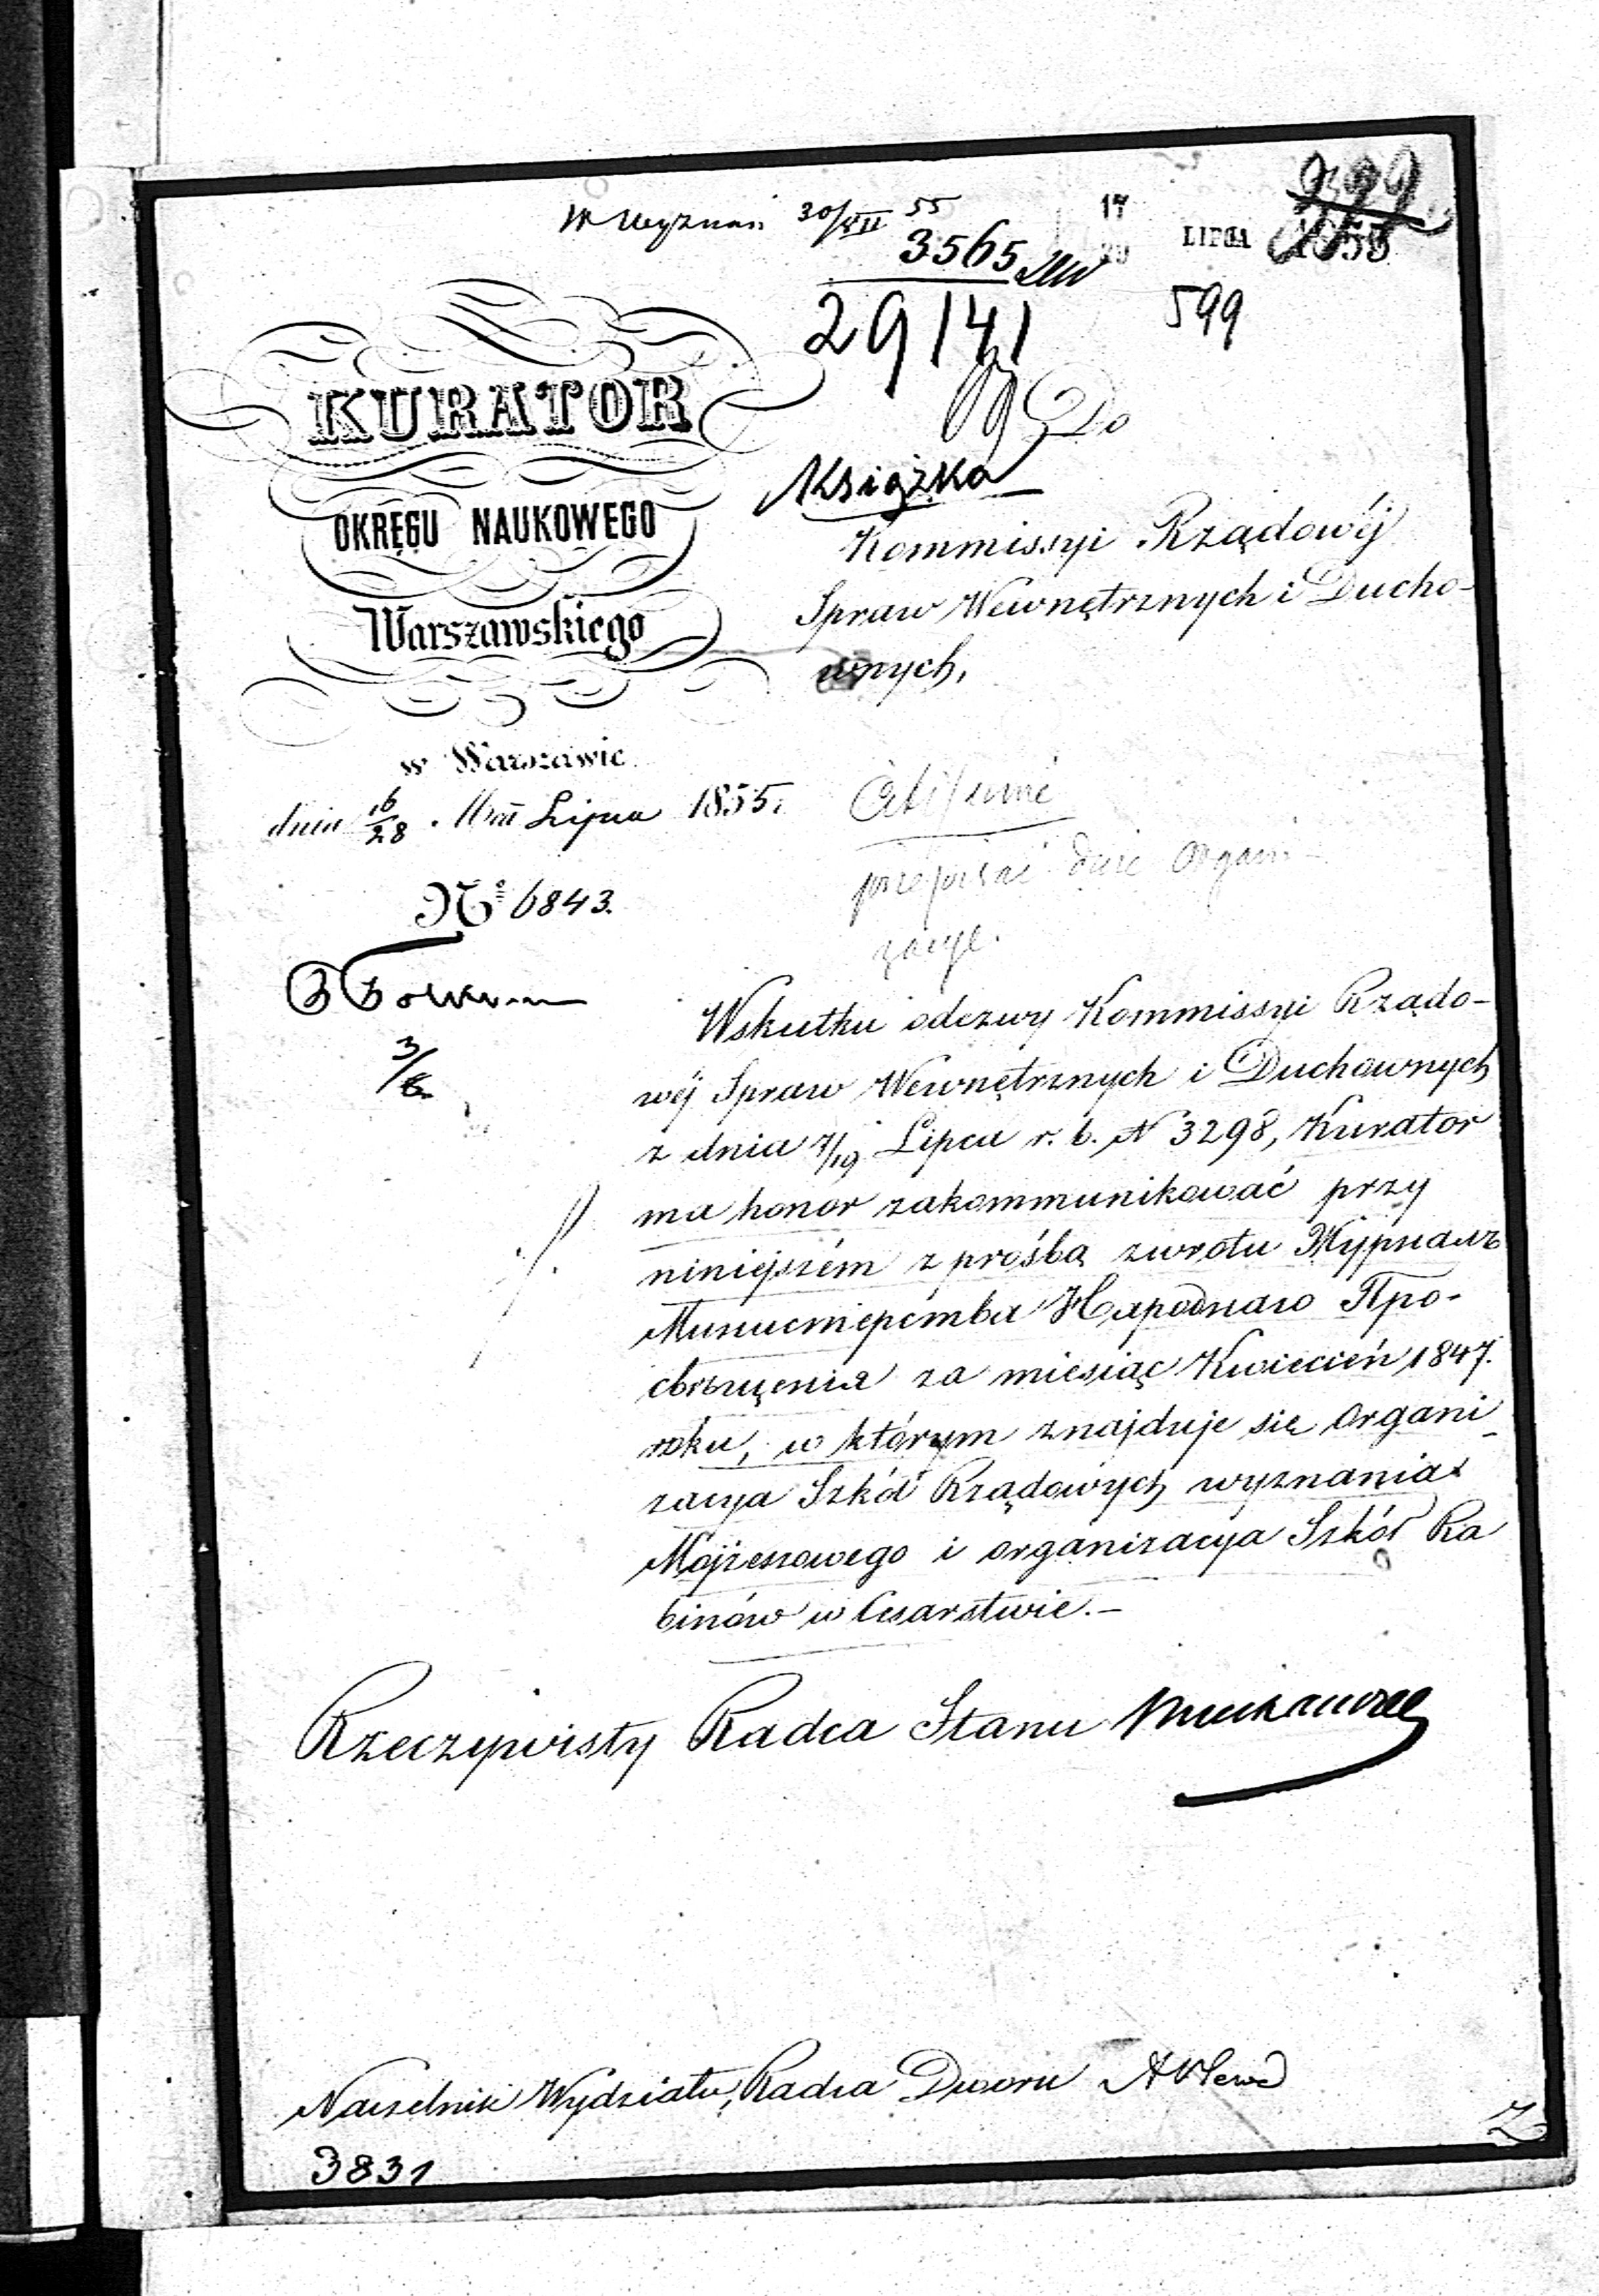 W Wyznań 30/VII 55
17
29 LIPCA 1855
3565
29141
599
KURATOR
OKRĘGU NAUKOWEGO
Warszawskiego
w Warszawie
dnia 16/28 Lipca 1855.
№ 6843.
Do
Książka
Kommissyi Rządowéj
Spraw Wewnętrznych i Ducho-
wnych,
przepisać dwie Organi-
zacye.
3/8
Wskutku odezwy Kommissyi Rządo-
wéj Spraw Wewnętrznych i Duchownych
z dnia 7/19 Lipca r. b. N 3298, Kurator
ma honor zakommunikować przy
niniejszém z prośbą zwrotu Журналъ
Министерства Народнаго Про-
свѣщенія za miesiąc Kwiecień 1847.
roku, w którym znajduje się Organi-
zacya Szkół Rządowych wyznania
Mojżeszowego i organizacya Szkół Ra
binów w Cesarstwie.-
Rzeczywisty Radca Stanu
Naczelnik Wydziału, Radca Dworu
3831